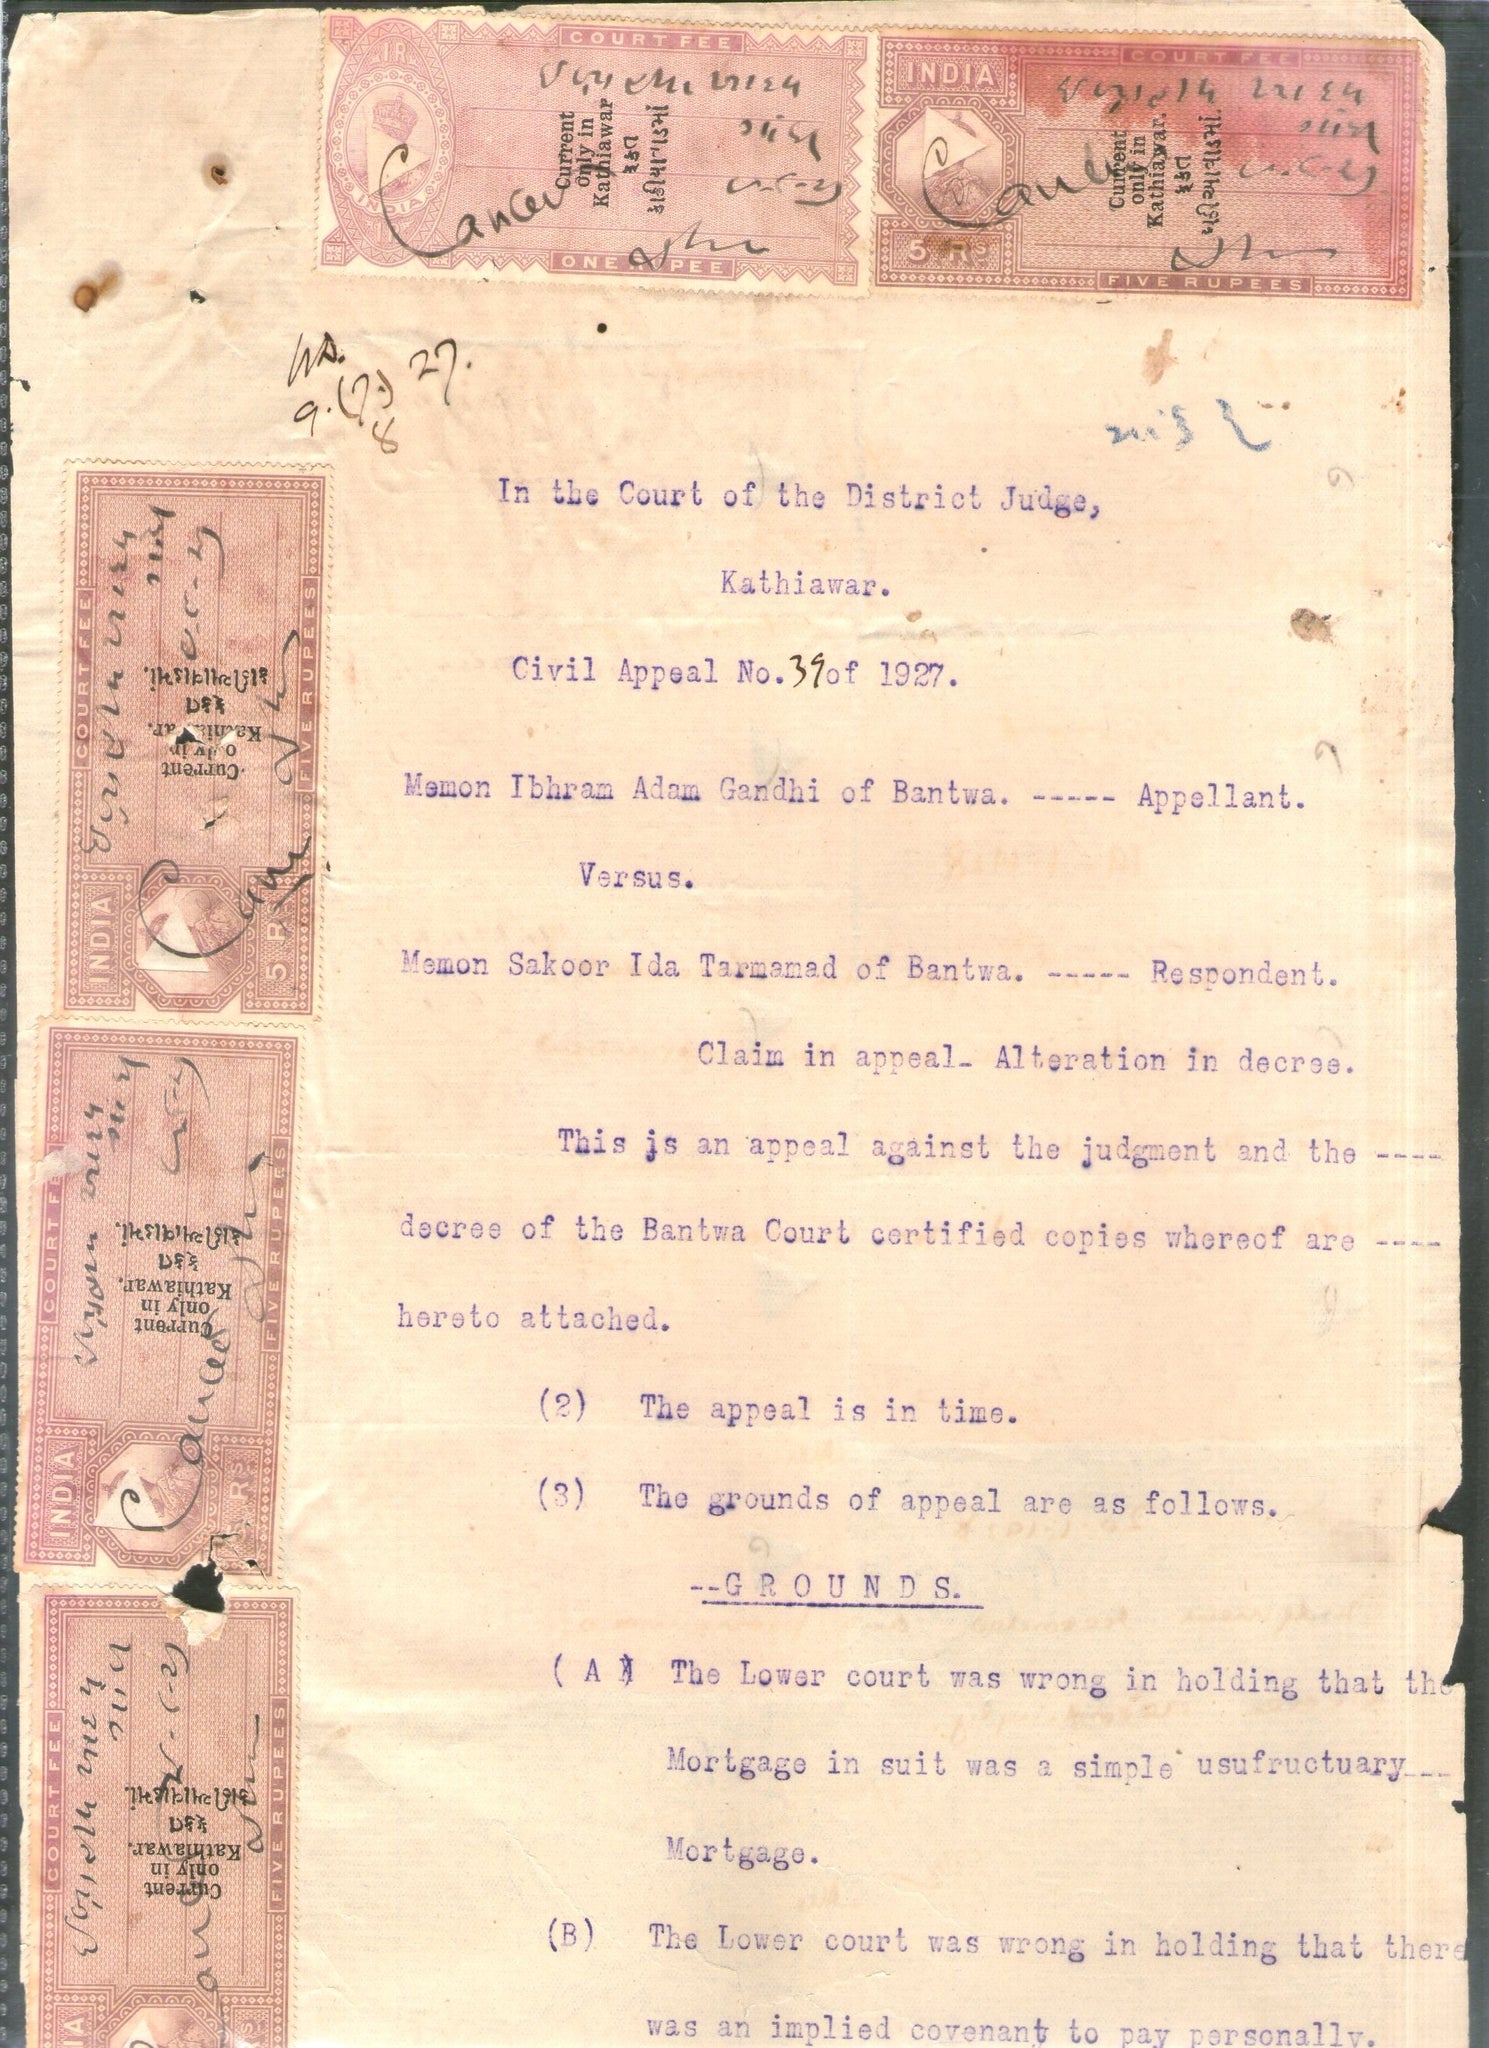 COURT FEE
1R
INDIA
Current
only in
Kathiawar
ફકત
Cancel
ONE RUPEE
COURT FEE
INDIA
Current
only in
Kathiawar.
ફકત
5 RS
FIVE RUPEES
27.
8
In the Court of the District Judge,
Kathiawar.
Civil Appeal No.39 of 1927.
Memon Ibhram Adam Gandhi of Bantwa. ----- Appellant.
Versus.
Memon Sakoor Ida Tarmamad of Bantwa. ----- Respondent.
Claim in appeal- Alteration in decree.
This is an appeal against the judgment and the ----
decree of the Bantwa Court certified copies whereof are ----
hereto attached.
(2) The appeal is in time.
(3) The grounds of appeal are as follows.
--G R O U N D S.
( A ) The Lower court was wrong in holding that the
Mortgage in suit was a simple usufructuary---
Mortgage.
(B) The Lower court was wrong in holding that there
was an implied covenant to pay personally.
COURT FEE
INDIA
Current
only in
Kathiawar.
ફકત
કાઠીઆવાડમાં.
5 RS
FIVE RUPEES
COURT FEE
INDIA
Current
only in
Kathiawar.
ફકત
કાઠીઆવાડમાં.
Cancel
RS
FIVE RUPEES
COURT FEE
Current
only in
Kathiawar.
ફકત
કાઠીઆવાડમાં.
FIVE RUPEES